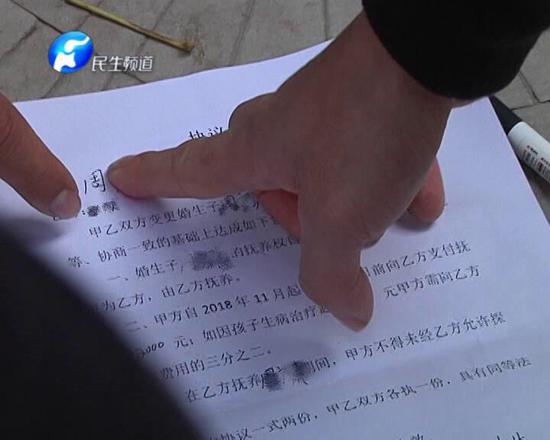 民生频道
协议
周
甲乙双方变更婚生子
等、协商一致的基础上达成如下
一、婚生子 的抚养权
为乙方，由乙方抚养。
二、甲方自2018年11月起 前向乙方支付抚
000元；如因孩子生病治疗 元甲方需向乙方
费用的三分之二。
在乙方抚养 期间，甲方不得未经乙方允许探
协议一式两份，甲乙双方各执一份，具有同等法